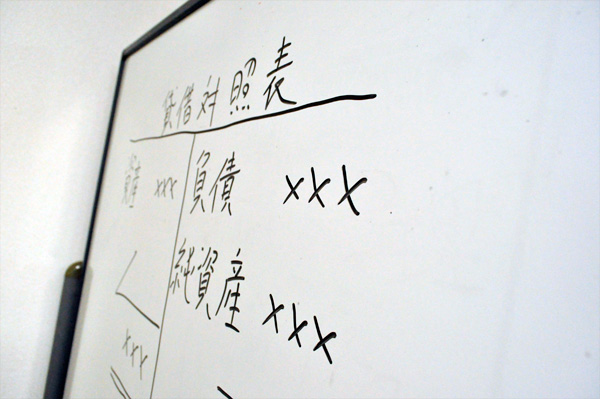 貸借対照表
資産 xxx 負債 xxx
純資産 xxx
xxx